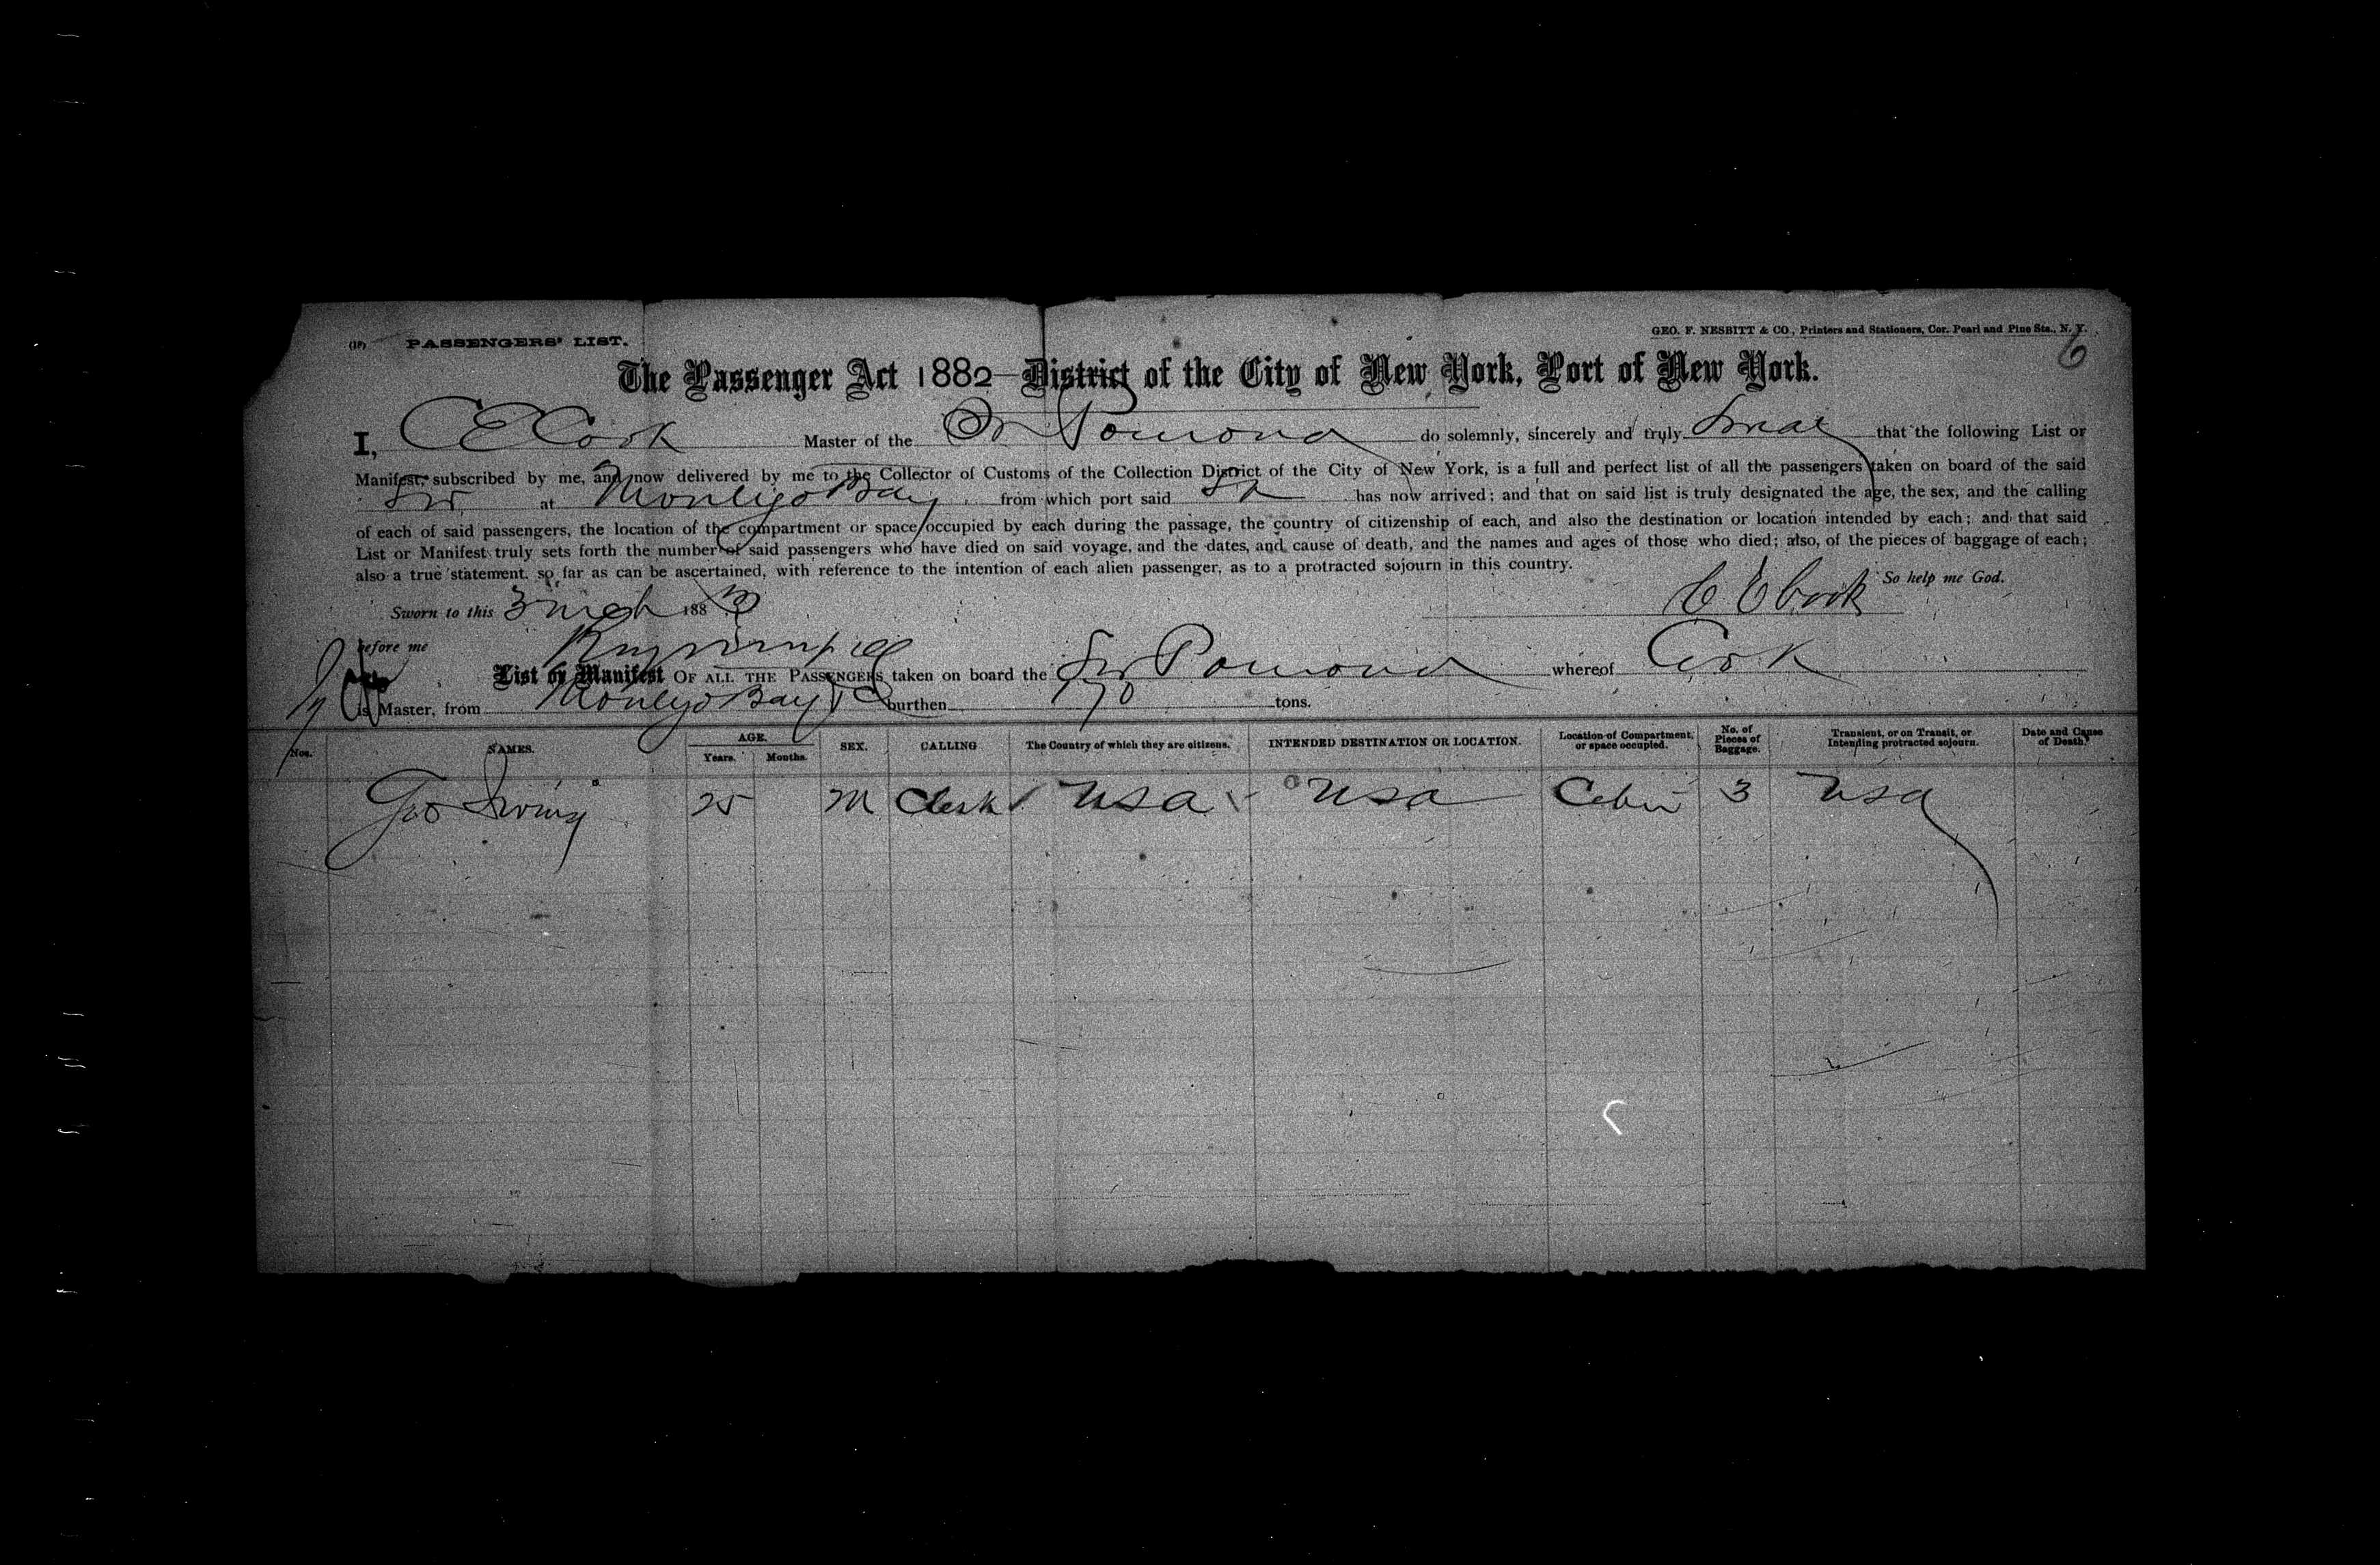 (18) PASSENGERS' LIST.
GEO. F. NESBITT & CO., Printers and Stationers, Cor. Pearl and Pine Sts., N. Y.
6
The Passenger Act 1882—District of the City of New York, Port of New York.
I, C E Cook Master of the Pomona do solemnly, sincerely and truly Swear that the following List or
Manifest, subscribed by me, and now delivered by me to the Collector of Customs of the Collection District of the City of New York, is a full and perfect list of all the passengers taken on board of the said
Str at Montego Bay from which port said has now arrived; and that on said list is truly designated the age, the sex, and the calling
of each of said passengers, the location of the compartment or space occupied by each during the passage, the country of citizenship of each, and also the destination or location intended by each; and that said
List or Manifest truly sets forth the number of said passengers who have died on said voyage, and the dates, and cause of death, and the names and ages of those who died; also, of the pieces of baggage of each;
also a true statement, so far as can be ascertained, with reference to the intention of each alien passenger, as to a protracted sojourn in this country.
So help me God.
Sworn to this 3 188
C E Cook
before me
List or Manifest OF ALL THE PASSENGERS taken on board the Str Pomona whereof Cook
is Master, from Montego Bay burthen 170 tons.
Nos. NAMES. AGE. Years. Months. SEX. CALLING The Country of which they are citizens. INTENDED DESTINATION OR LOCATION. Location of Compartment, or space occupied. No. of Pieces of Baggage. Transient, or on Transit, or Intending protracted sojourn. Date and Cause of Death.
Geo Irving 25 M Clerk USA USA Cabin 3 USA